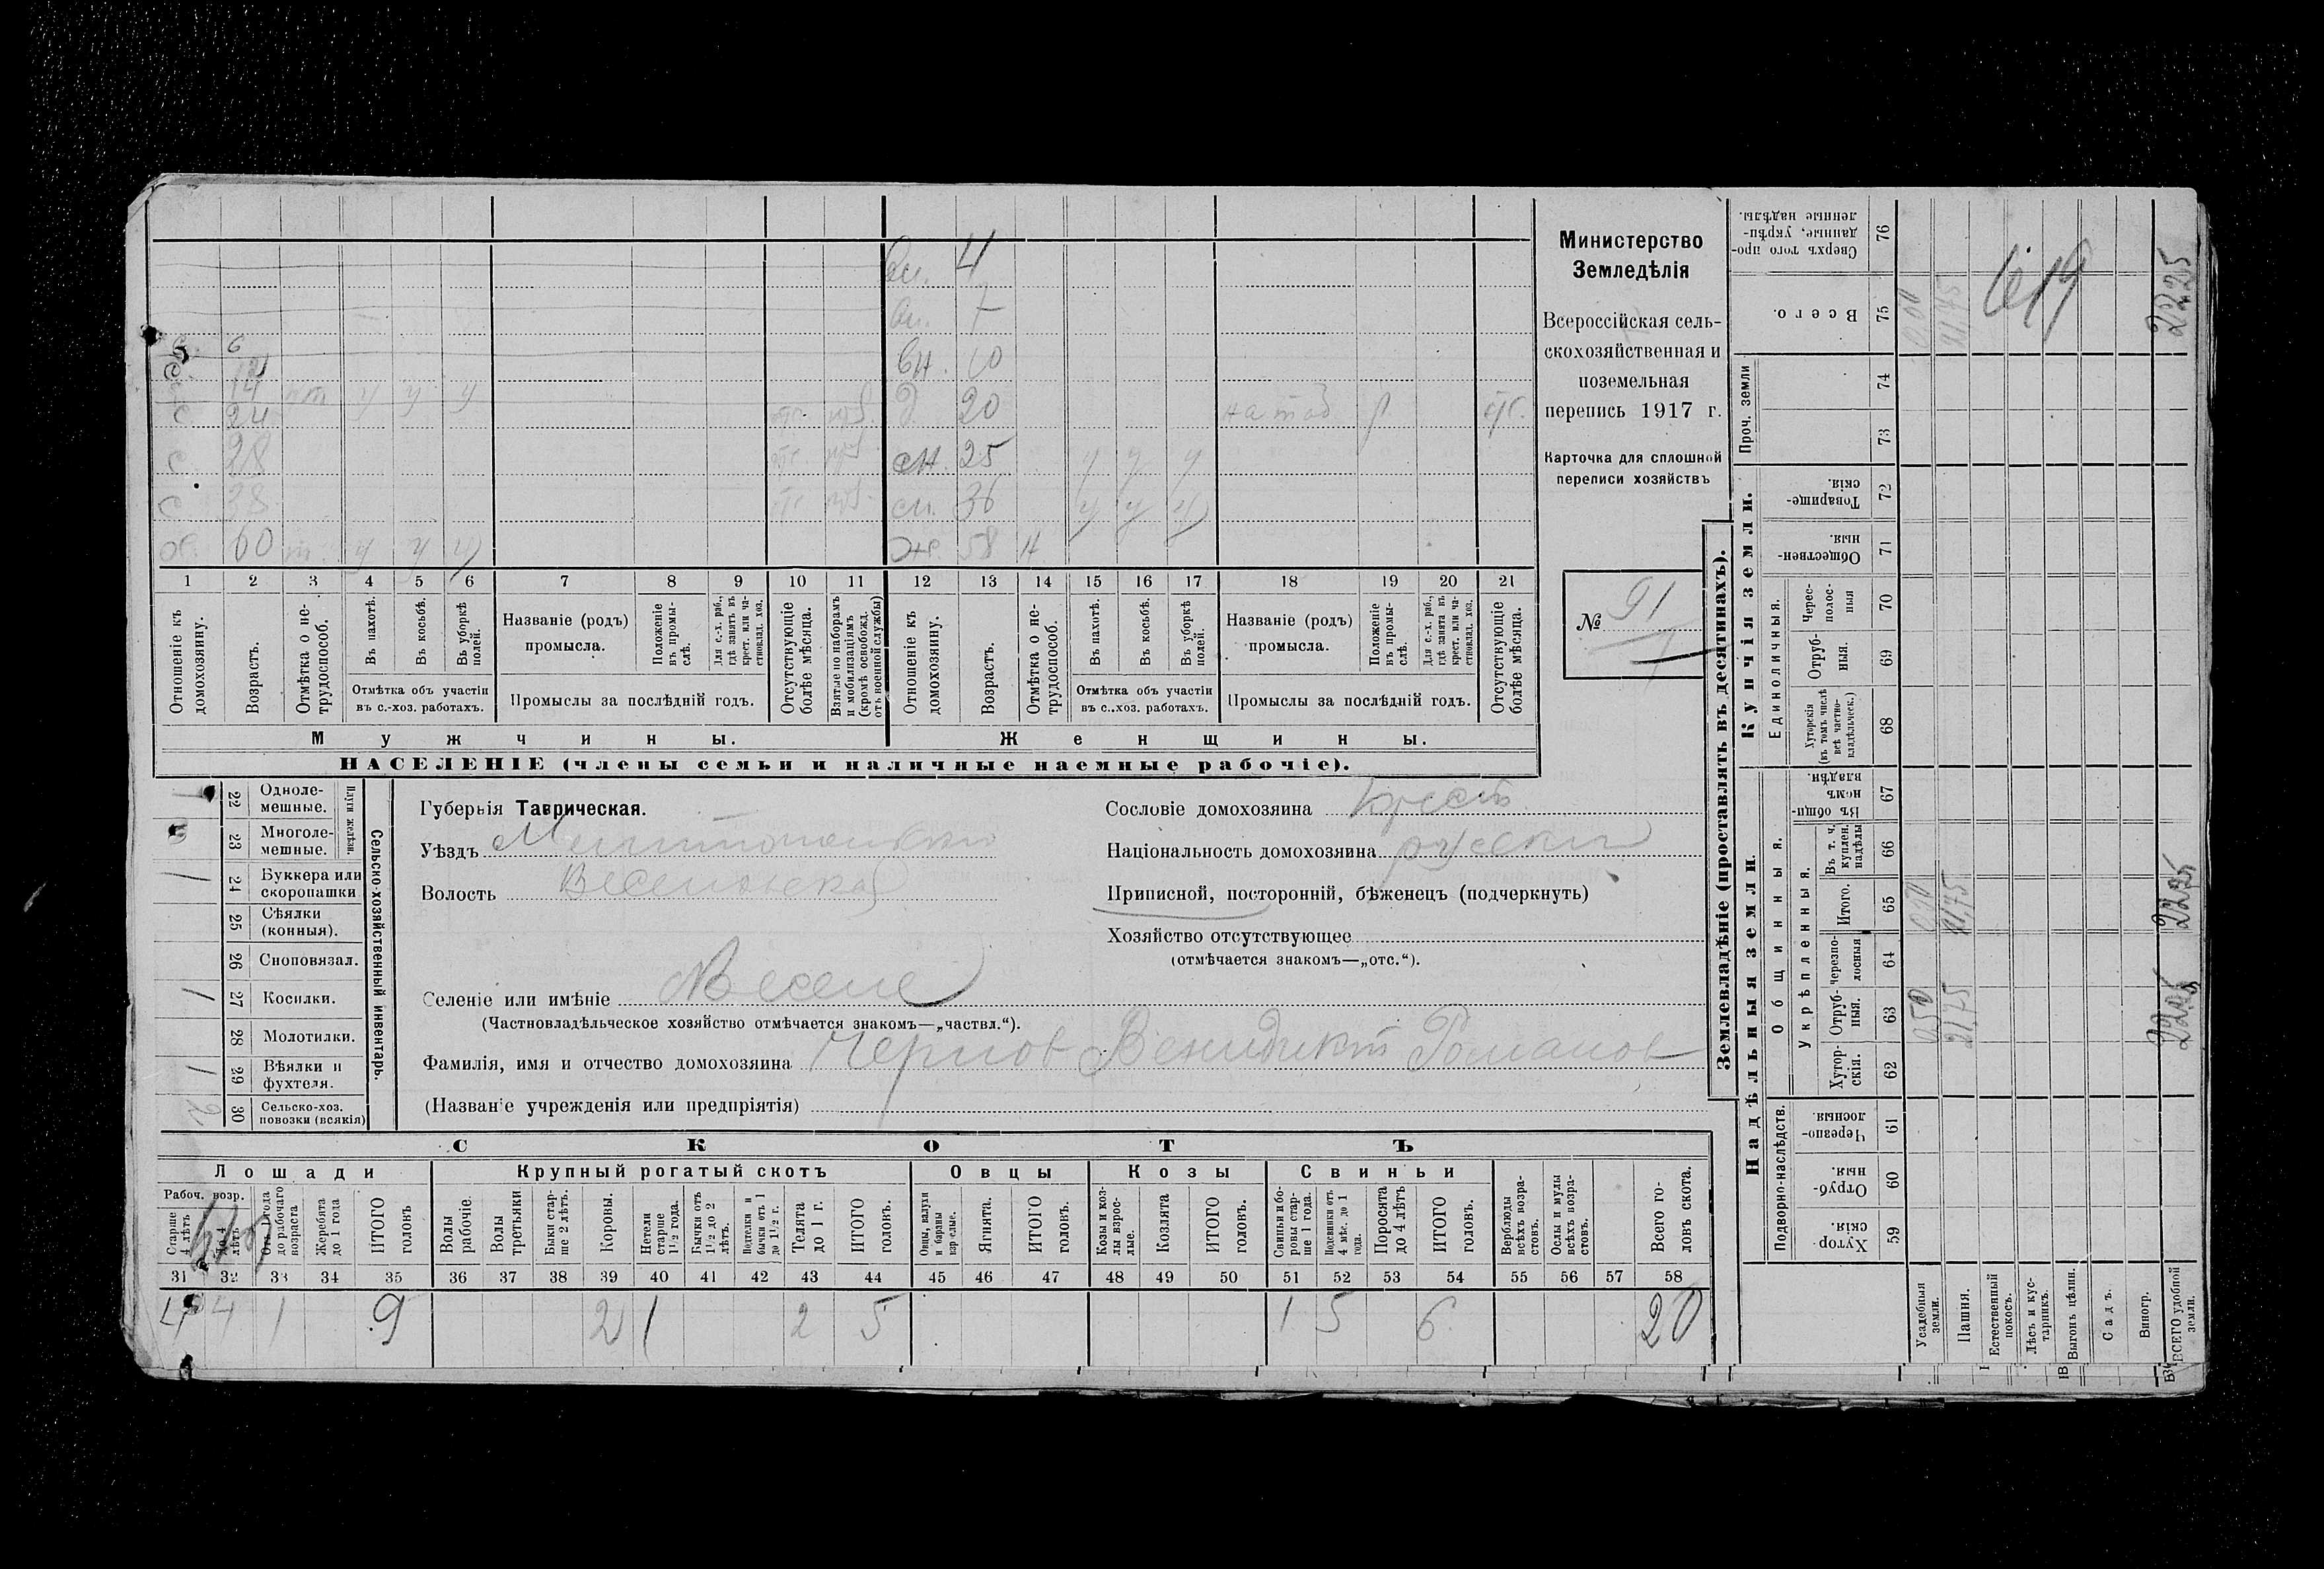 Министерство
Земледѣлія
Всероссійская сель-
скохозяйственная и
поземельная
перепись 1917 г.
Карточка для сплошной
переписи хозяйствъ
№ 91
вн. 4
вн. 7
6 вн. 10
с 14 у у у д. 20 р отс.
с 24 отс. сн. 25 у у у
с 28 отс. сн. 36 у у у
с 38 отс. 
60 у у у 58 н
1 2 3 4 5 6 7 8 9 10 11 12 13 14 15 16 17 18 19 20 21
Отношеніе къ домохозяину.
Возрастъ.
Отмѣтка о не-трудоспособ.
Въ пахотѣ.
Въ косьбѣ.
Въ уборкѣ полей.
Отмѣтка объ участіи
въ с.-хоз. работахъ.
Названіе (родъ)
промысла.
Положеніе въ промы-слѣ.
Для с.-х. раб., гдѣ занятъ въ крест. или ча-стновлад. хоз.
Промыслы за послѣдній годъ.
Отсутствующіе болѣе мѣсяца.
Взятые по наборамъ и мобилизаціямъ (кромѣ освобожд. отъ военной службы)
Отношеніе къ домохозяину.
Возрастъ.
Отмѣтка о не-трудоспособ.
Въ пахотѣ.
Въ косьбѣ.
Въ уборкѣ полей.
Отмѣтка объ участіи
въ с.-хоз. работахъ.
Названіе (родъ)
промысла.
Положеніе въ промы-слѣ.
Для с.-х. раб., гдѣ занята въ крест. или ча-стновлад. хоз.
Промыслы за послѣдній годъ.
Отсутствующіе болѣе мѣсяца.
Мужчины. Женщины.
НАСЕЛЕНІЕ (члены семьи и наличные наемные рабочіе).
Сельско-хозяйственный инвентарь.
Плуги желѣзн.
22 Одноле-мешные. 1
23 Многоле-мешные.
24 Буккера или скоропашки 1
25 Сѣялки (конныя).
26 Сноповязал.
27 Косилки. 1
28 Молотилки.
29 Вѣялки и фухтеля. 1
30 Сельско-хоз. повозки (всякія) 2
Губернія Таврическая.
Уѣздъ Мелитопольский
Волость Веселовская
Селеніе или имѣніе Веселе
(Частновладѣльческое хозяйство отмѣчается знакомъ—„частвл.“).
Фамилія, имя и отчество домохозяина Чернов Венидикт Романов
(Названіе учрежденія или предпріятія)
Сословіе домохозяина Крест
Національность домохозяина русский
Приписной, посторонній, бѣженецъ (подчеркнуть)
Хозяйство отсутствующее
(отмѣчается знакомъ—„отс.“).
СКОТЪ
Лошади Крупный рогатый скотъ Овцы Козы Свиньи
Рабоч. возр.
Старше 4 лѣтъ
До 4 лѣтъ
От года до рабочаго возраста
Жеребята до 1 года
ИТОГО головъ
Волы рабочіе.
Волы третьяки
Быки стар-ше 2 лѣтъ.
Коровы.
Нетели старше 1 1/2 года.
Бычки отъ 1 1/2 до 2 лѣтъ.
Подтелки и бычки отъ 1 до 1 1/2 г.
Телята до 1 г.
ИТОГО головъ.
Овцы, валухи и бараны взрослые.
Ягнята.
ИТОГО головъ.
Козы и коз-лы взрос-лые.
Козлята
ИТОГО головъ.
Свиньи и бо-ровы стар-ше 1 года.
Подсвинки отъ 4 мѣс. до 1 года.
Поросята до 4 лѣтъ
ИТОГО головъ.
Верблюды всѣхъ возра-стовъ.
Ослы и мулы всѣхъ возра-стовъ.
Всего го-ловъ скота.
31 32 33 34 35 36 37 38 39 40 41 42 43 44 45 46 47 48 49 50 51 52 53 54 55 56 57 58
4 4 1 9 2 1 2 5 1 5 6 20
Землевладѣніе (проставлять въ десятинахъ).
Надѣльныя земли. Купчія земли. Проч. земли
Подворно-наслѣдств. Общинныя. Единоличныя.
Укрѣпленныя.
Хутор-скія. 59
Отруб-ныя. 60
Черезпо-лосныя 61
Хутор-скія. 62
Отруб-ныя. 63
Черезпо-лосныя 64
Итого. 65
Въ т. ч. куплен. надѣлы 66
Въ общин-номъ владѣн. 67
Хуторскія (въ томъ числѣ всѣ частно-владѣльческ.) 68
Отруб-ныя. 69
Черес-полос-ныя 70
Обществен-ныя. 71
Товарище-скія. 72
73
74
Всего. 75
Сверхъ того про-данные, укрѣп-ленные надѣлы. 76
Усадебныя земли. 0.50
Пашня. 21,75 21,75 21,75
Естественный покосъ.
Лѣсъ и кус-тарникъ.
Выгонъ цѣлин.
Садъ.
Виногр.
ВСЕГО удобной земли. 22.25 22.25 22.25